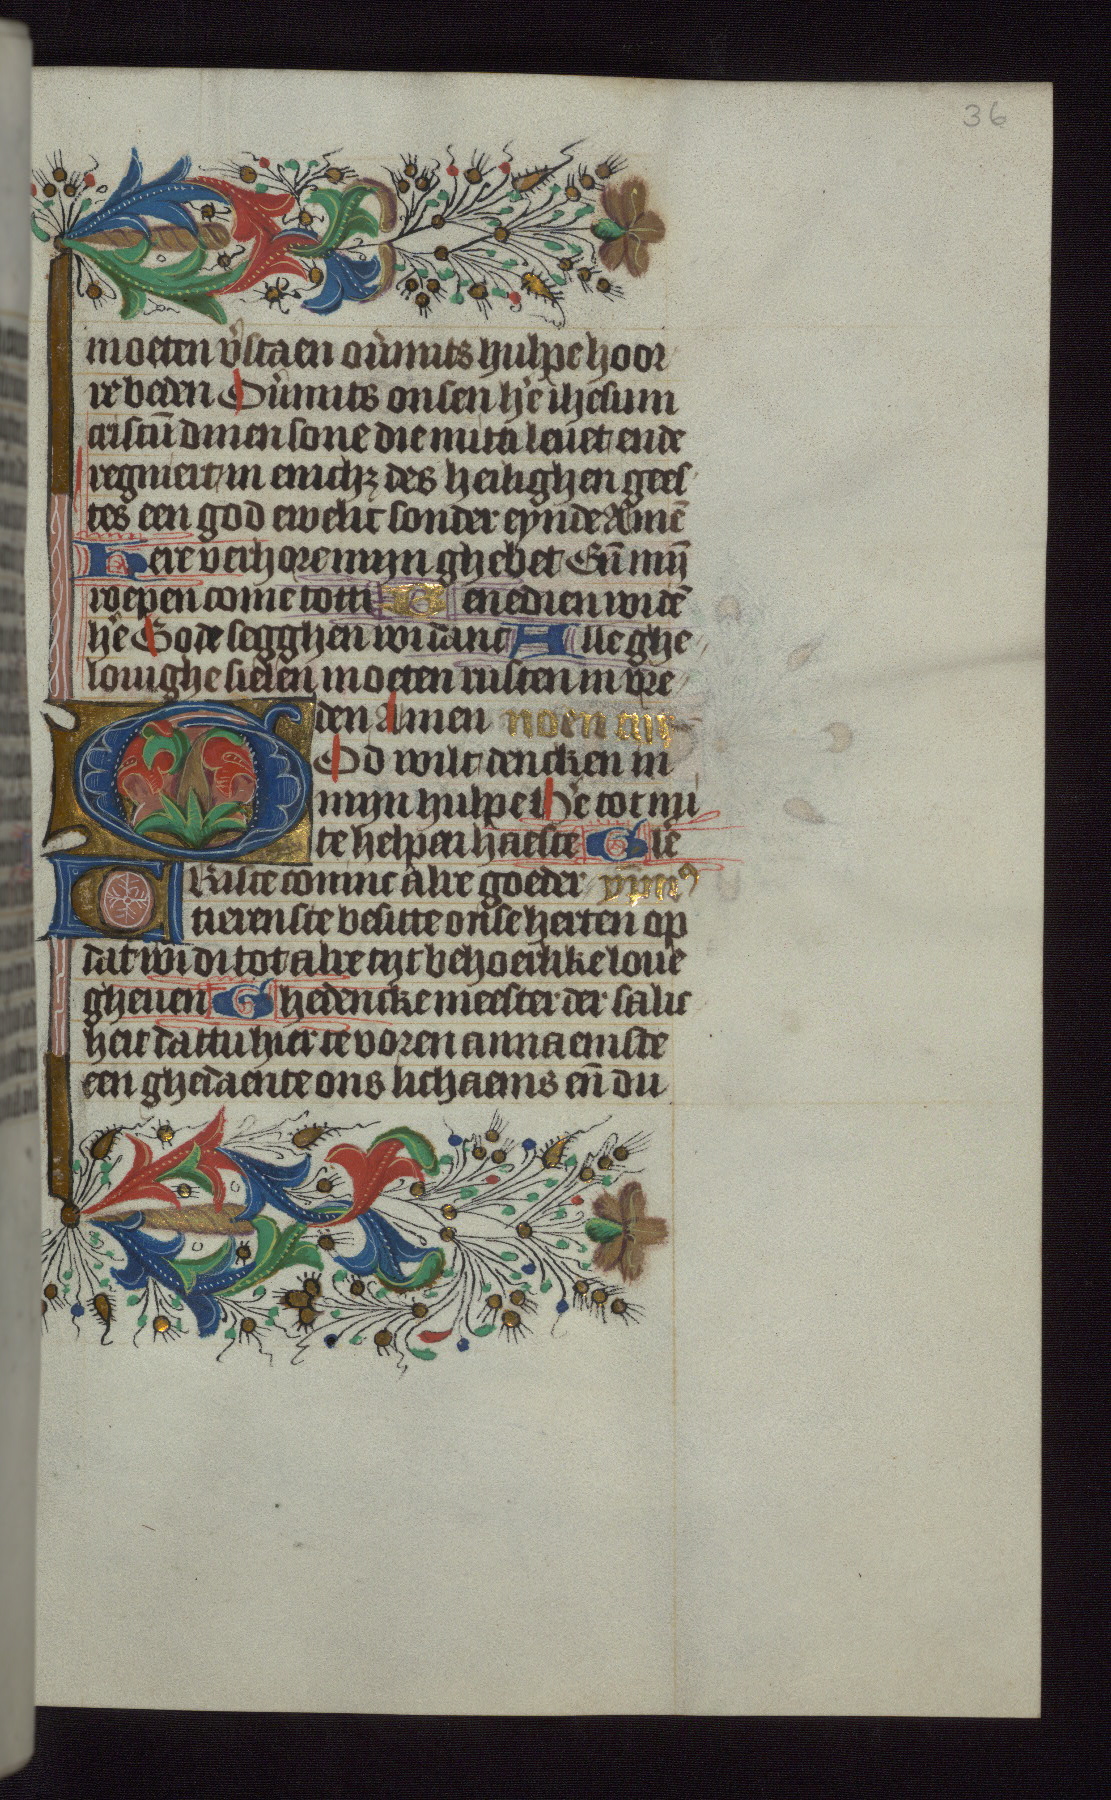 36
moeten v̄staen ou̇mits hulpe hoor
re beden Ou̇mits onsen h̄e ihesum
cristū dinen sone die mit di leuet ende
regniert in enichȝ des heilighen gees
tes een god ewelic sonder eynde Amē
Here verhore mijn ghebet En̄ mȳ
roepen come totti Benedien wi dē
h̄e Gode segghen wi danc Alle ghe
louighe sielen moeten rusten in vre
den Amen noen tijt
God wilt dencken in
mijn hulpe h̄e tot mi
te helpen haeste Glē
Kriste coninc alre goeder ym̄nꝯ
tierenste besitte onse herten op
dat wi di tot alre tijt behoerlike loue
gheuen Ghedencke meester der salic
heit dattu hier te voren annaemste
een ghedaente ons lichaems en̄ du